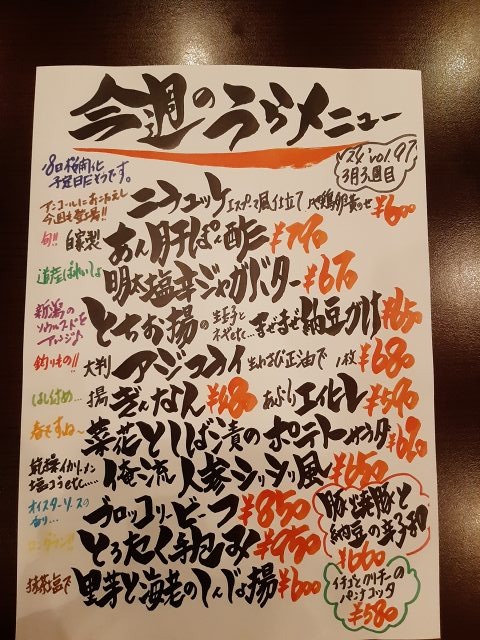 今週のうらメニュー
'24 vol.97
3月3週目
18日桜開花
予定日だそうです。
アンコールにおこたえし
今週も登場!!
ニラユッケ エスプーマ風仕立て 鶏卵黄のせ ¥600
旬!! 自家製 あん肝ぽん酢 ¥790
道産ばれいしょ 明太塩辛ジャガバター ¥670
新潟の
ソウルフードを
アレンジ♪
とちお揚の 生玉子と
ネギとで… まぜまぜ納豆グリル ¥650
釣りもの!! 大判 アジフライ 生わさび正油で 1枚 ¥680
はしやすめ… 揚ぎんなん ¥480 あぶりエイヒレ ¥590
春ですね〜 菜花としば漬のポテトサラダ ¥620
乾燥イカ、メンマ
塩コンブetc.... 俺流人参シリシリ風 ¥650
オイスターソースの
香り… ブロッコリービーフ ¥850
ロングラン!! とろたく手包み ¥950
抹茶塩で 里芋と海老のしんじょ揚 ¥600
豚と焼豚と
納豆の辛子和 ¥660
イチゴとクリチーの
パンナコッタ
¥580